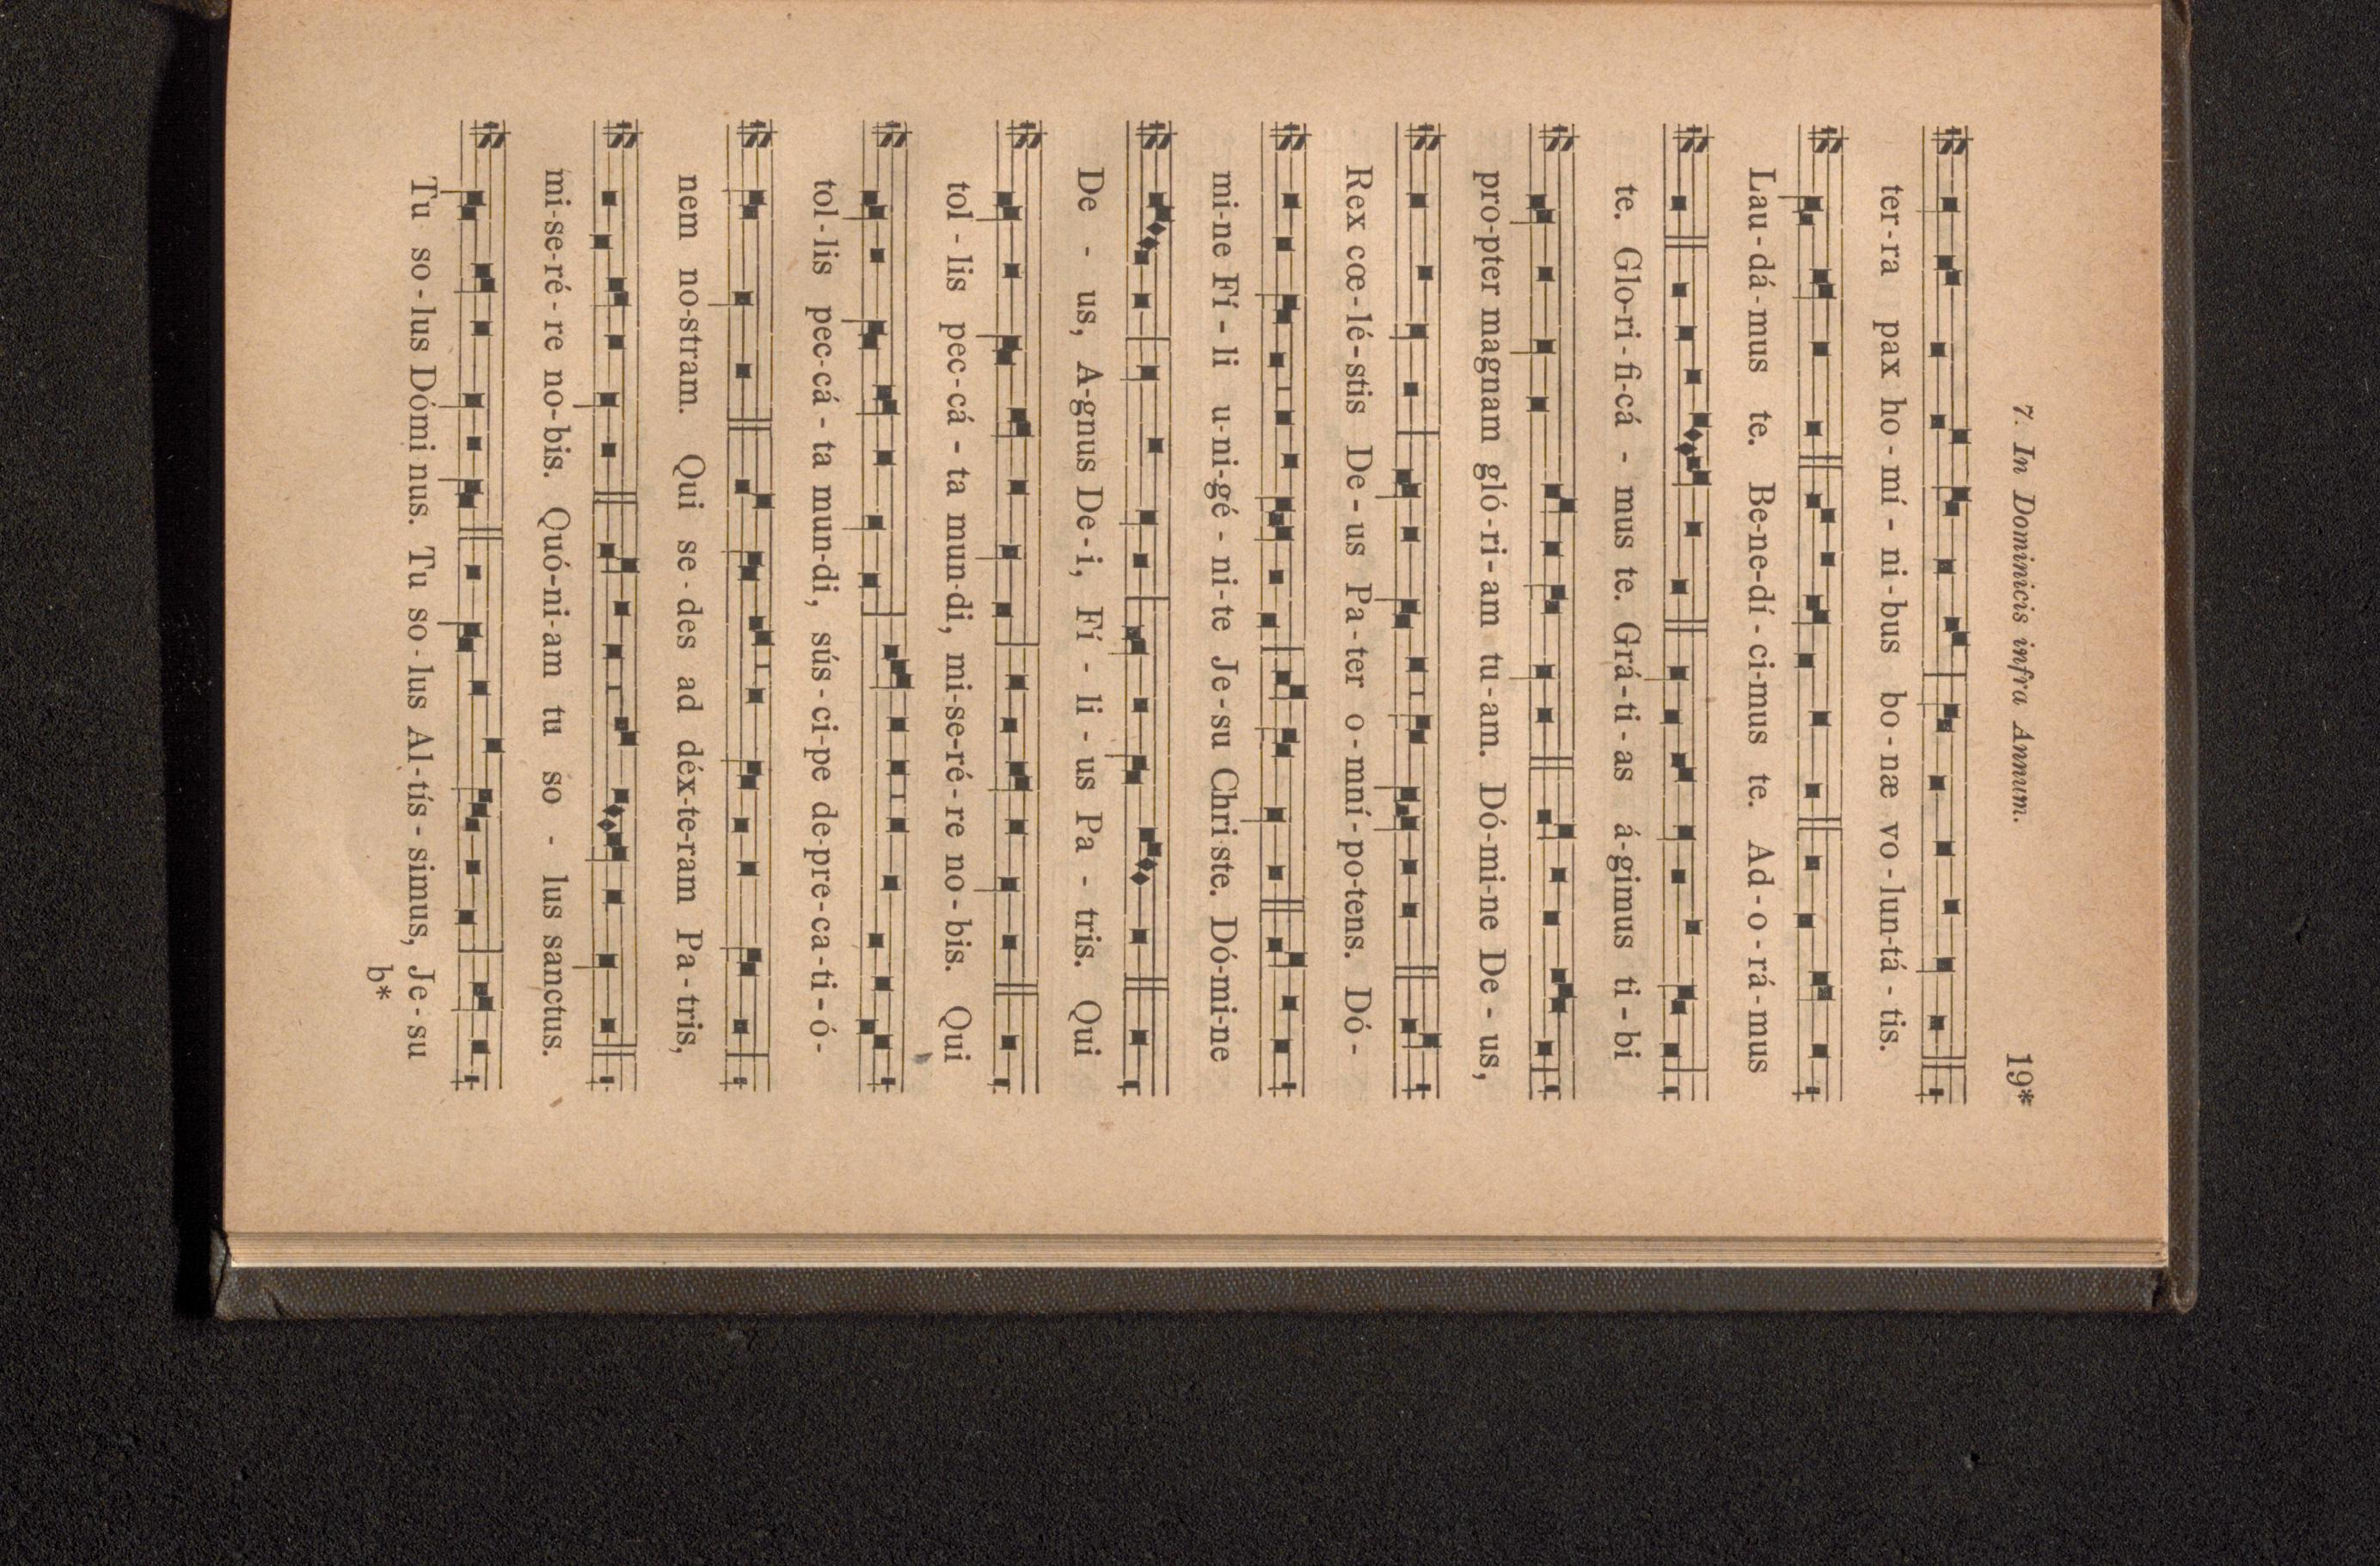 7. In Dominicis infra Annum. 19*
ter-ra pax ho-mí-ni-bus bo-næ vo-lun-tá-tis.
Lau-dá-mus te. Be-ne-dí-ci-mus te. Ad-o-rá-mus
te. Glo-ri-fi-cá-mus te. Grá-ti-as á-gimus ti-bi
pro-pter magnam gló-ri-am tu-am. Dó-mi-ne De-us,
Rex cœ-lé-stis De-us Pa-ter o-mní-po-tens. Dó-
mi-ne Fí-li u-ni-gé-ni-te Je-su Chri-ste. Dó-mi-ne
De-us, A-gnus De-i, Fí-li-us Pa-tris. Qui
tol-lis pec-cá-ta mun-di, mi-se-ré-re no-bis. Qui
tol-lis pec-cá-ta mun-di, sús-ci-pe de-pre-ca-ti-ó-
nem no-stram. Qui se-des ad déx-te-ram Pa-tris,
mi-se-ré-re no-bis. Quó-ni-am tu so-lus sanctus.
Tu so-lus Dómi nus. Tu so-lus Al-tís-simus, Je-su
b*